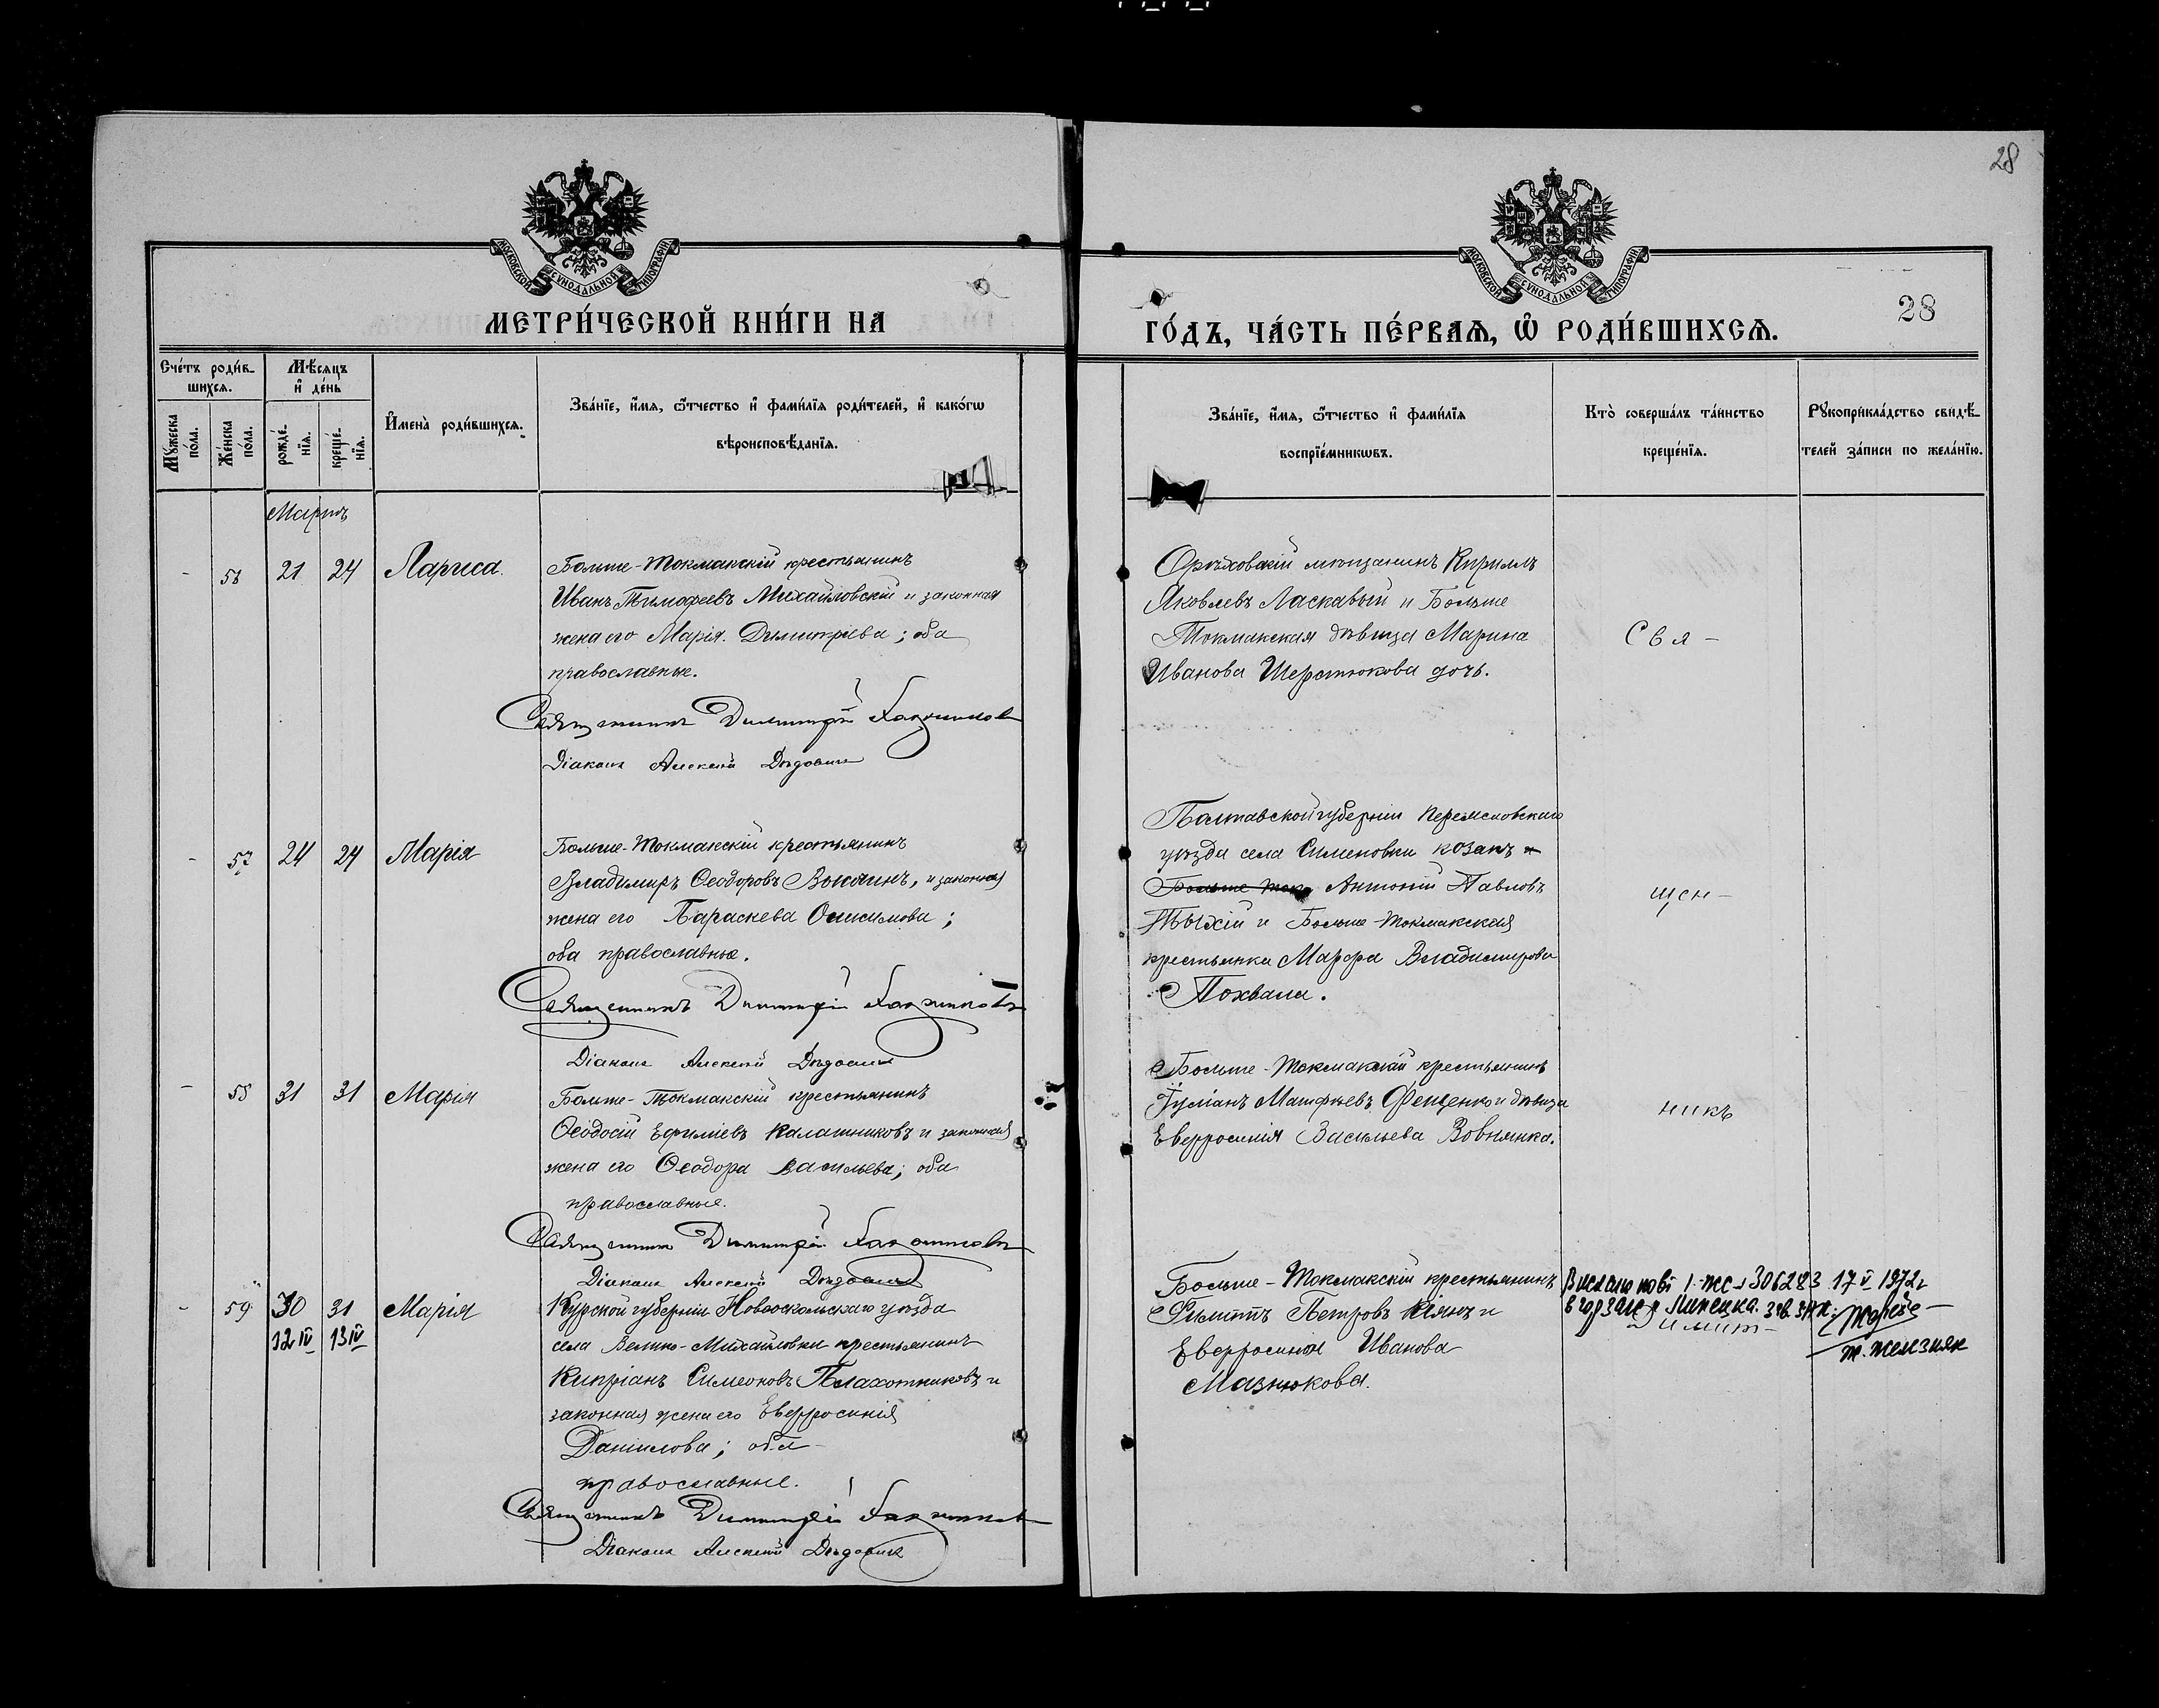 28
МОСКОВСКОЙ СѴНОДАЛЬНОЙ ТИПОГРАФІИ
МОСКОВСКОЙ СѴНОДАЛЬНОЙ ТИПОГРАФІИ
МЕТРИ́ЧЕСКОЙ КНИ́ГИ НА
ГО́ДЪ, ЧА́СТЬ ПЕ́РВАѦ, Ѡ҆ РОДИ́ВШИХСѦ.
28
Сче́тъ роди́в-
шихсѧ.
Мѣ́сѧцъ
и҆ де́нь
Мꙋ́жеска
по́ла.
Же́нска
по́ла.
рожде́-
нїѧ.
креще́-
нїѧ.
И҆мена̀ роди́вшихсѧ.
Зва́нїе, и҆́мѧ, ѻ҆́тчество и҆ фами́лїѧ роди́телей, и҆ како́гѡ
вѣроисповѣ́данїѧ.
Зва́нїе, и҆́мѧ, ѻ҆́тчество и҆ фами́лїѧ
воспрїе́мникѡвъ.
Кто̀ соверша́лъ та́инство
креще́нїѧ.
Рꙋкоприкла́дство свидѣ́-
телей за́писи по жела́нїю.
Мартъ
- 56 21 24 Лариса.
Больше-Токмакскій крестьянинъ
Иванъ Тимофеевъ Михайловскій и законная
жена его Марія Димитріева; оба
православные.
Священникъ Димитрій
Діаконъ Алексей
Орѣховскій мѣщанинъ Кириллъ
Яковлевъ Ласкавый и Больше
Токмакская дѣвица Марина
Иванова Шерстюкова дочь.
Свя-
- 57 24 24 Марія
Больше-Токмакскій крестьянинъ
Владимиръ Ѳеодоровъ и законная
жена его Параскева Онисимова;
оба православные.
Священникъ Димитрій
Діаконъ Алексей
Полтавской губерніи
уѣзда села Сименовки козакъ и
Больше Ток Антоній Павловъ
и Больше-Токмакская
крестьянка Марфа Владимирова
Похвала.
щен-
- 58 31 31 Марія
Больше-Токмакскій крестьянинъ
Ѳеодосій Ефиміевъ Калашниковъ и законная
жена его Ѳеодора Васильева; оба
православные.
Священникъ Димитрій
Діаконъ Алексей
Больше-Токмакскій крестьянинъ
Іуліанъ Матфеевъ Фещенко и дѣвица
Евфросинія Васильева Вовнянка.
никъ
- 59 30 31 Марія
12 IV 13 IV
Курской губерніи Новооскольскаго уѣзда
села Велико-Михайловки крестьянинъ
Кипріанъ Симеоновъ Плахотниковъ и
законная жена его Евфросинія
Даніилова; оба
православные.
Священникъ Димитрій
Діаконъ Алексей
Больше-Токмакскій крестьянинъ
Филиппъ Петровъ Кіянъ и
Евфросинія Иванова
Мазнюкова.
Димит-
306283 17 V 1972 г
Липецка.